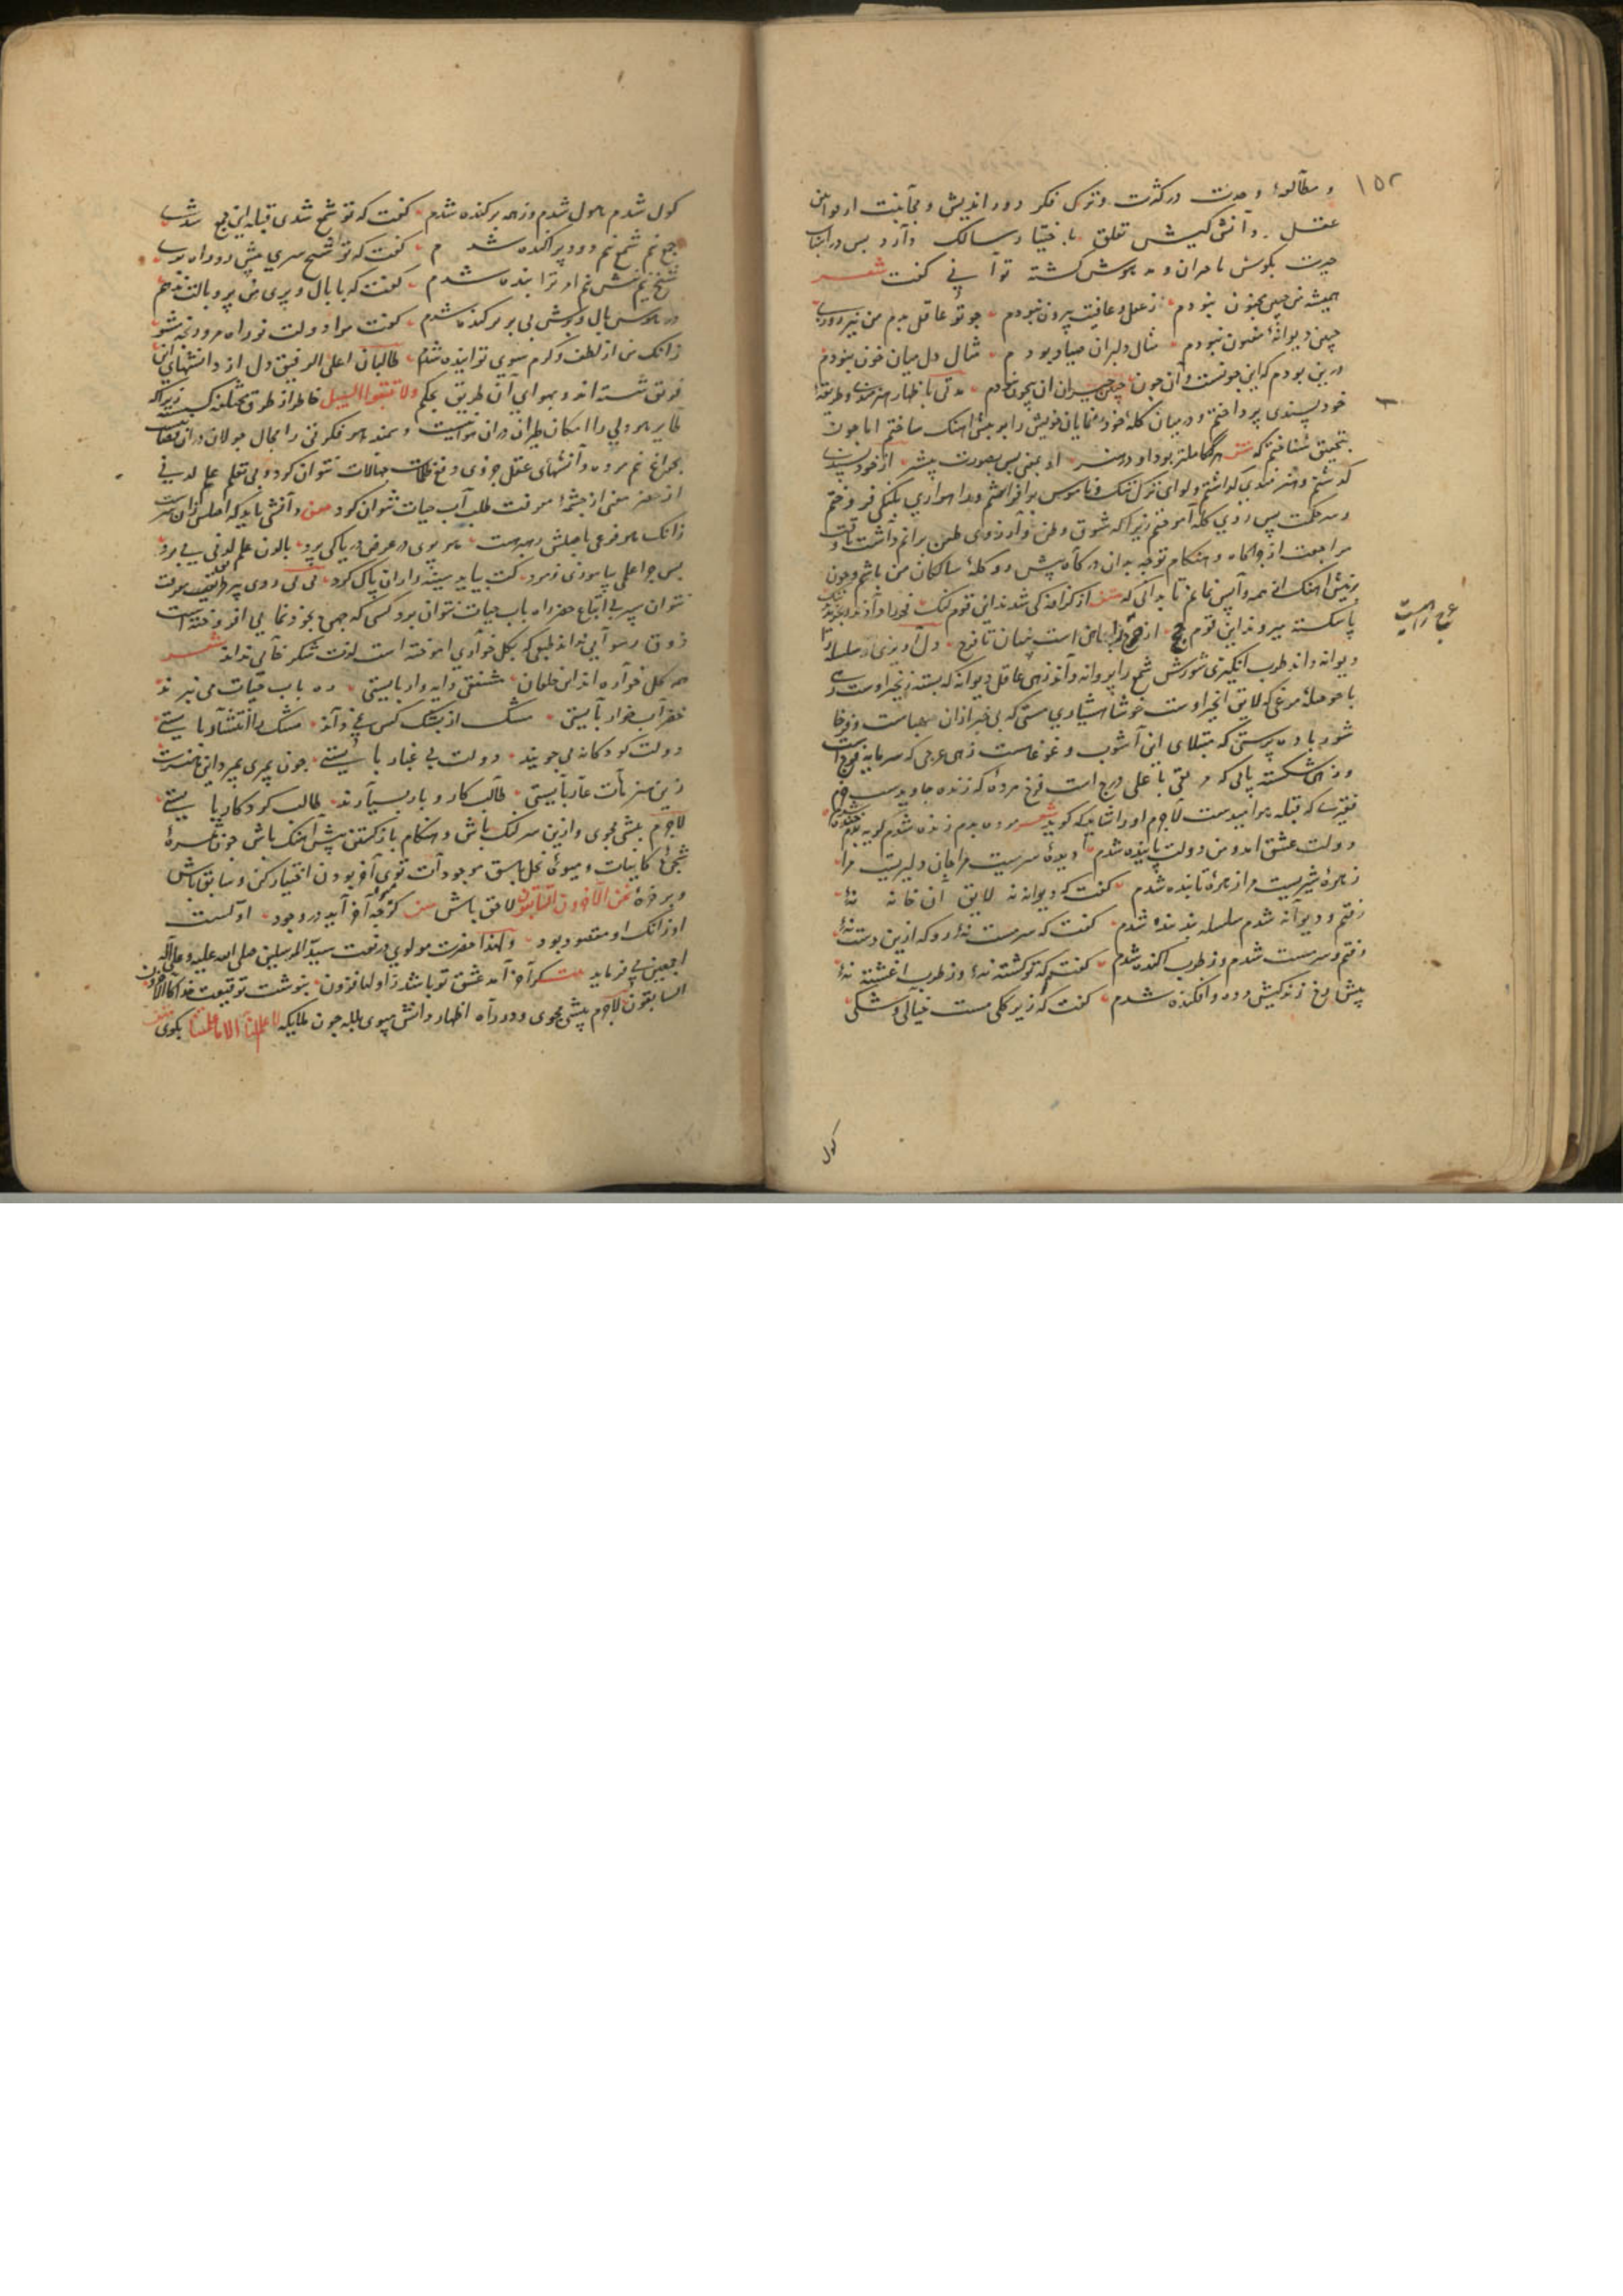 ١٥٢
و مطالعهٔ وحدت در کثرت و ترک فکر دور اندیش و مجانبت از لوامن
عقل و دانش کیش تعلق باختیار سالک دارد پس در اثنای
حیرت بکوش با حیران و مدهوش کشته توانی کفت شعر
همیشه من چنین مجنون نبودم زعقل و عافیت بیرون نبودم چو تو عاقل بدم من نیز روزی
چنین دیوانهٔ مفتون نبودم مثال دلبران صیاد بودم مثال دل میان خون نبودم
درین بودم که این چونست و آن چون چنین حیران آن بیچون نبودم مدتی باظهار هنرمندی و طریقهٔ
خودپسندی پرداختم و در میان کلهٔ خود نمایان خویش را بر پیش آهنک ساختم اما چون
بتحقیق شناختم که هر که کاملتر بود او در هنر او بمعنی پس بصورت پیشتر از خودپسندی
کذشتم و هنرمندی کذاشتم و لوای ترک ننک و ناموس برافراشتم
و سر حکمت پس روی کله آموختم زیرا که شوق وطن و آرزوی
مراجعت از چراکاه و هنکام توجه بدان درکاه پیش رو کلهٔ ساکنان من باشم و چون
بز پیش آهنک از همه واپس نمانم تا بدانی که از کزافه کی شدند این قوم لنک فخر را دادند و بخریدند ننک
پاشکسته میروند این قوم حج از حرج راهیست پنهان تا فرج دل آویزی سلسله را
دیوانه داند طرب انکیزی شورش شمع را پروانه داند زهی عاقل دیوانه که بسته زنجیر اوست
با حوصله مرغی که لایق انجیر اوست خوشا هشیاری مستی که بی خبر از آن صهباست
شور باده پرستی که مبتلای این آشوب و غوغاست زهی عرجی که سرمایه فرج است
و زهی شکسته پایی که مرتقی باعلی درج است فرخ مرده که زنده جاوید
فقیری که قبله هر امیدست لاجرم او را شاید که کوید شعر مرده بدم زنده شدم کریه بدم خنده شدم
دولت عشق آمد و من دولت پاینده شدم دیدهٔ سیرست مرا جان دلیرست مرا
زهرهٔ شیرست مرا زهرهٔ تابنده شدم کفت که دیوانه نهٔ لایق این خانه نهٔ
رفتم و دیوانه شدم سلسله بندنده شدم کفت که سرمست نهٔ رو که ازین دست نهٔ
رفتم و سرمست شدم وز طرب آکنده شدم کفت که تو کشته نهٔ وز طرب آغشته نهٔ
پیش رخ زنده کنش مرده و افکنده شدم کفت که زیرکلی مست خیالی و شکی
کول
کول شدم هول شدم وز همه برکنده شدم کفت که تو شمع شدی قبلهٔ این جمع شدی
جمع نیم شمع نیم دود پراکنده شدم کفت که تو شیخ سری پیش رو و راه بری
شیخ نیم پیش نیم امر ترا بنده شدم کفت که با بال و پری من پر و بالت ندهم
در هوس بال و پرش بی پر و پرکنده شدم کفت مرا دولت نو راه مرو رنجه مشو
زانک من از لطف و کرم سوی تو آینده شدم طالبان اعلی الرفیق دل از دانشهای این
فریق شسته اند و بهوای آن طریق بحکم ولا تتبعوا السبل خاطر از طرق مختلفه کسسته زیرا که
طایر هر ولی را امکان طیران در آن هواییست و سمند هر فکرتی را مجال جولان در آن
بچراغ نیم مرده دانشهای عقل جزوی دفع ظلمت خیالات نتوان کرد و بی تعلم علم لدنی
از خضر معنی از چشمهٔ معرفت طلب آب حیات نتوان کرد دانشی باید که اصلش زان سرست
زانک هر فرعی باصلش رهبرست هر پری در عرض دریا کی پرد تا لدن علم لدنی می برد
پس چرا علمی بیاموزی بمرد کش بباید سینه را زان پاک کرد
نتوان سپرد بی اتباع خضر راه بآب حیات نتوان برد کسی که
ذوق رسوایی نداند طبعی که بکل خواری آموخته است لذت شکر خایی نداند شعر
همه کل خواره اند این طفلان مشفق دایه وار بایستی ره بآب حیات می نبرند
خضر آب خوار بایستی مشک از پشک کس نمی داند مشک را انتشار بایستی
دولت کودکانه می جویند دولت بی غبار بایستی چون بمیری بمیرد این هنرت
زین هنرهات عار بایستی طالب کار و بار بسیارند طالب کردکار بایستی
لاجرم پیشی مجوی و ازین سر لنک باش و هنکام بازکشتن پیش آهنک باش چون ثمرهٔ
شجرهٔ کاینات و میوهٔ نخل باسق موجودات تویی آخر بودن اختیار کن و سابق باش
و بر خوان نحن الآخرون السابقون لاحق باش کرچه آخر آید در وجود اولست
او زانک او مقصود بود ولهذا حضرت مولوی در نعت سید المرسلین صلی الله علیه و علی آله
اجمعین می فرماید کر آخر آمد عشق تو باشد ز اولها فزون بنوشت توقیعت خدا کالآخرون
السابقون لاجرم پیشی مجوی و در راه اظهار دانش مپوی بلکه چون ملایکه لا علم لنا الا ما علمتنا بکوی